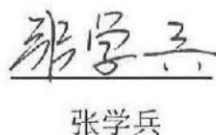 张学兵
张学兵